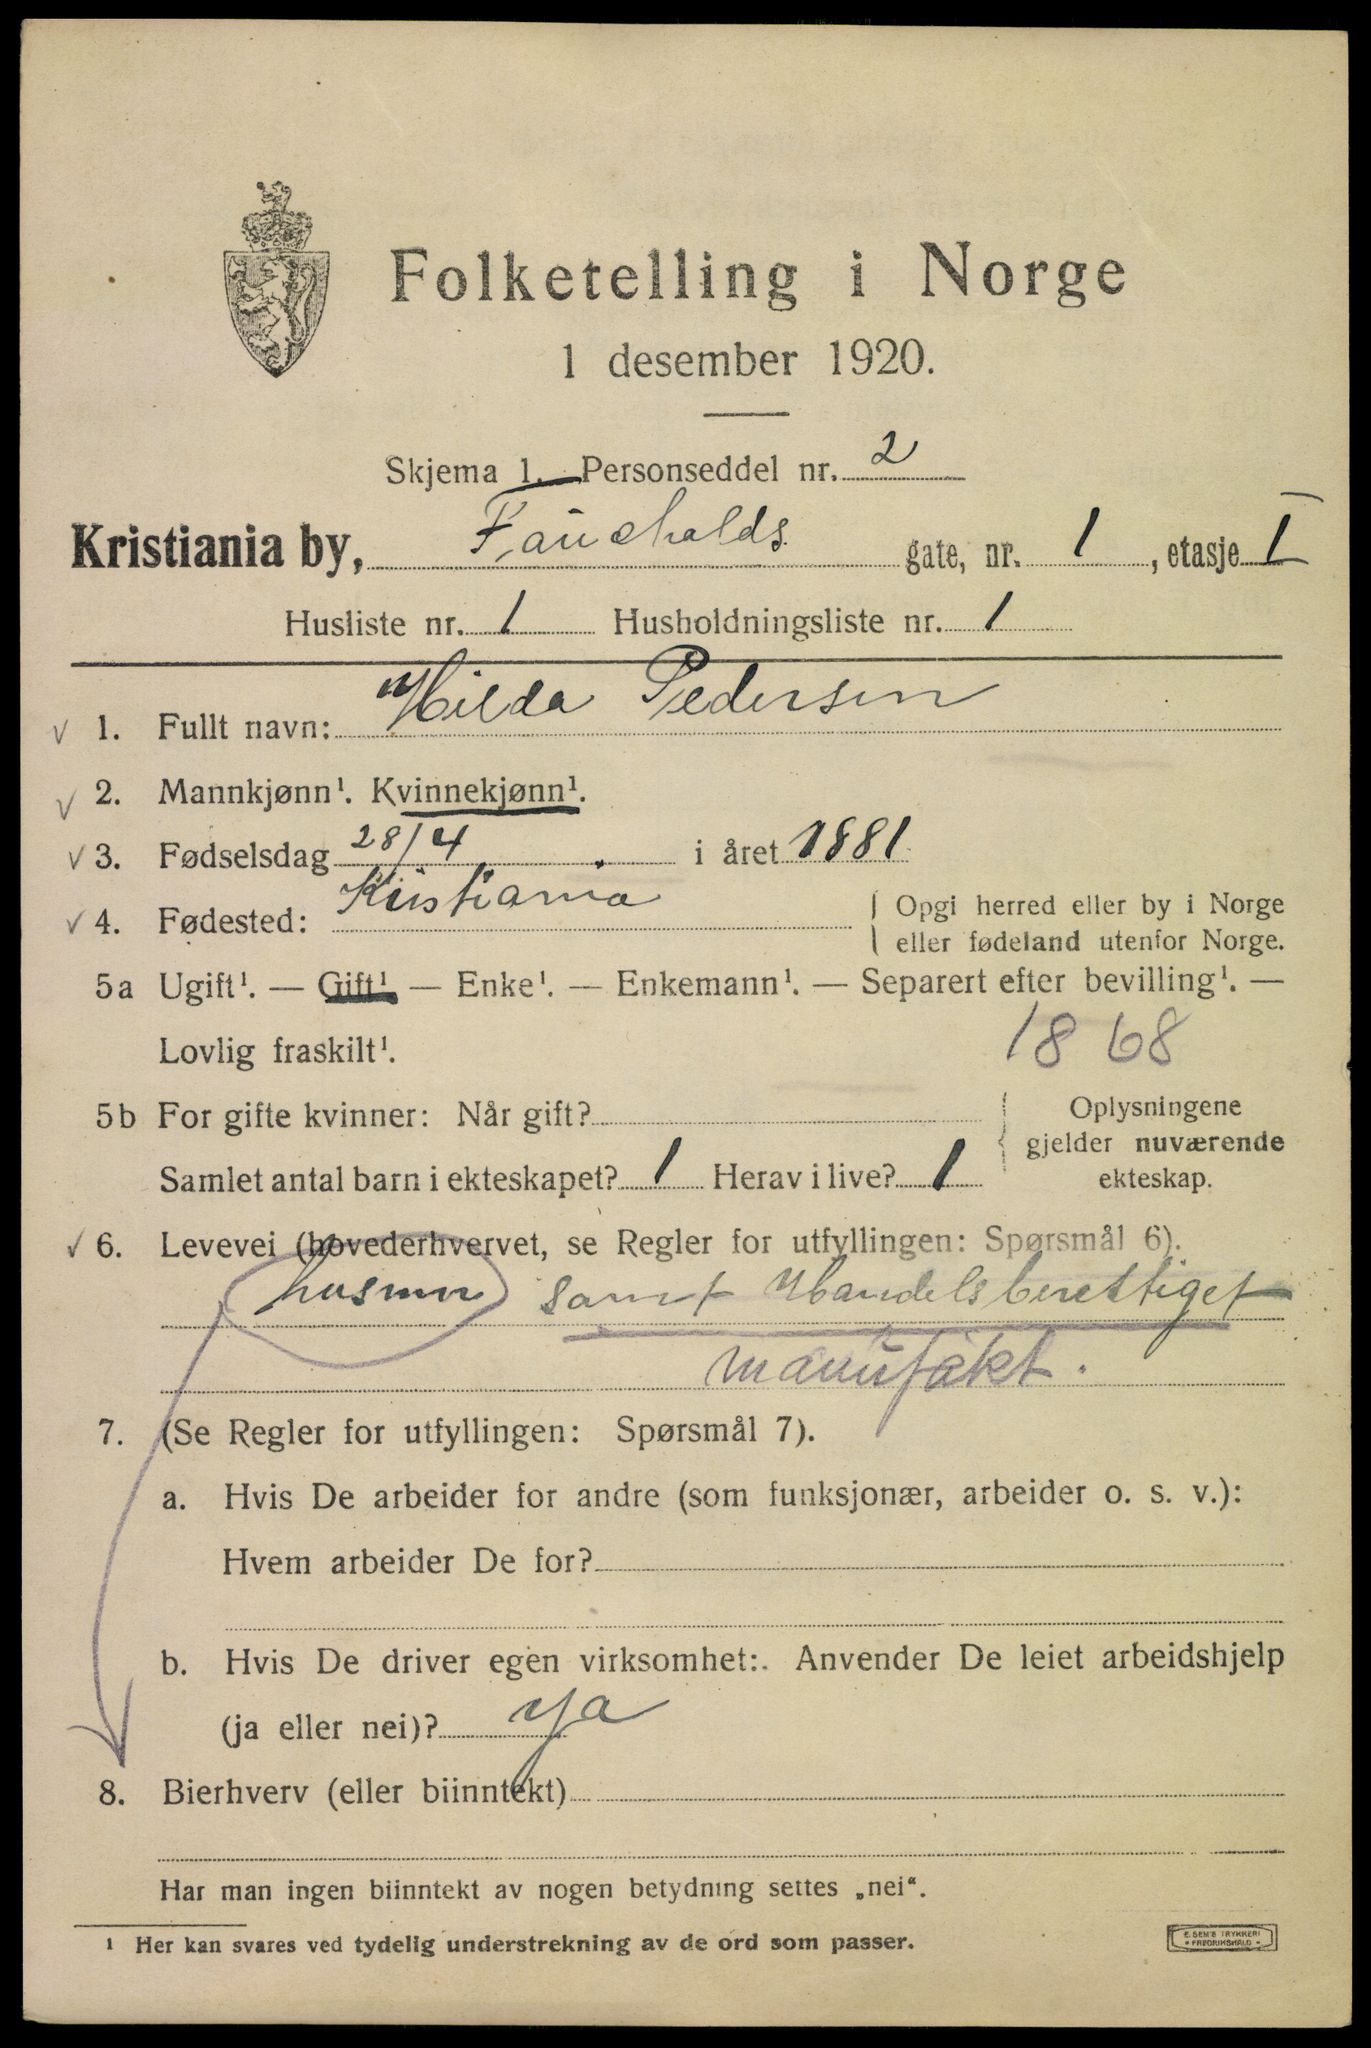 Folketelling i Norge
1 desember 1920.
Skjema 1. Personseddel nr. 2
Kristiania by, Faucholds gate, nr. 1, etasje I
Husliste nr. 1 Husholdningsliste nr. 1
1. Fullt navn: Hilda Pedersen
2. Mannkjønn¹. Kvinnekjønn¹.
3. Fødselsdag 28/4 i året 1881
4. Fødested: Kristiania
Opgi herred eller by i Norge
eller fødeland utenfor Norge.
5a Ugift¹. — Gift¹ — Enke¹. — Enkemann¹. — Separert efter bevilling¹. —
Lovlig fraskilt¹.
1868
5b For gifte kvinner: Når gift?
Samlet antal barn i ekteskapet? 1 Herav i live? 1
Oplysningene
gjelder nuværende
ekteskap.
6. Levevei (hovederhvervet, se Regler for utfyllingen: Spørsmål 6).
husmor samt Handelsberettiget
manufakt.
7. (Se Regler for utfyllingen: Spørsmål 7).
a. Hvis De arbeider for andre (som funksjonær, arbeider o. s. v.):
Hvem arbeider De for?
b. Hvis De driver egen virksomhet: Anvender De leiet arbeidshjelp
(ja eller nei)? ja
8. Bierhverv (eller biinntekt)
Har man ingen biinntekt av nogen betydning settes „nei“.
¹ Her kan svares ved tydelig understrekning av de ord som passer.
E. SEM'S TRYKKERI
FREDRIKSHALD